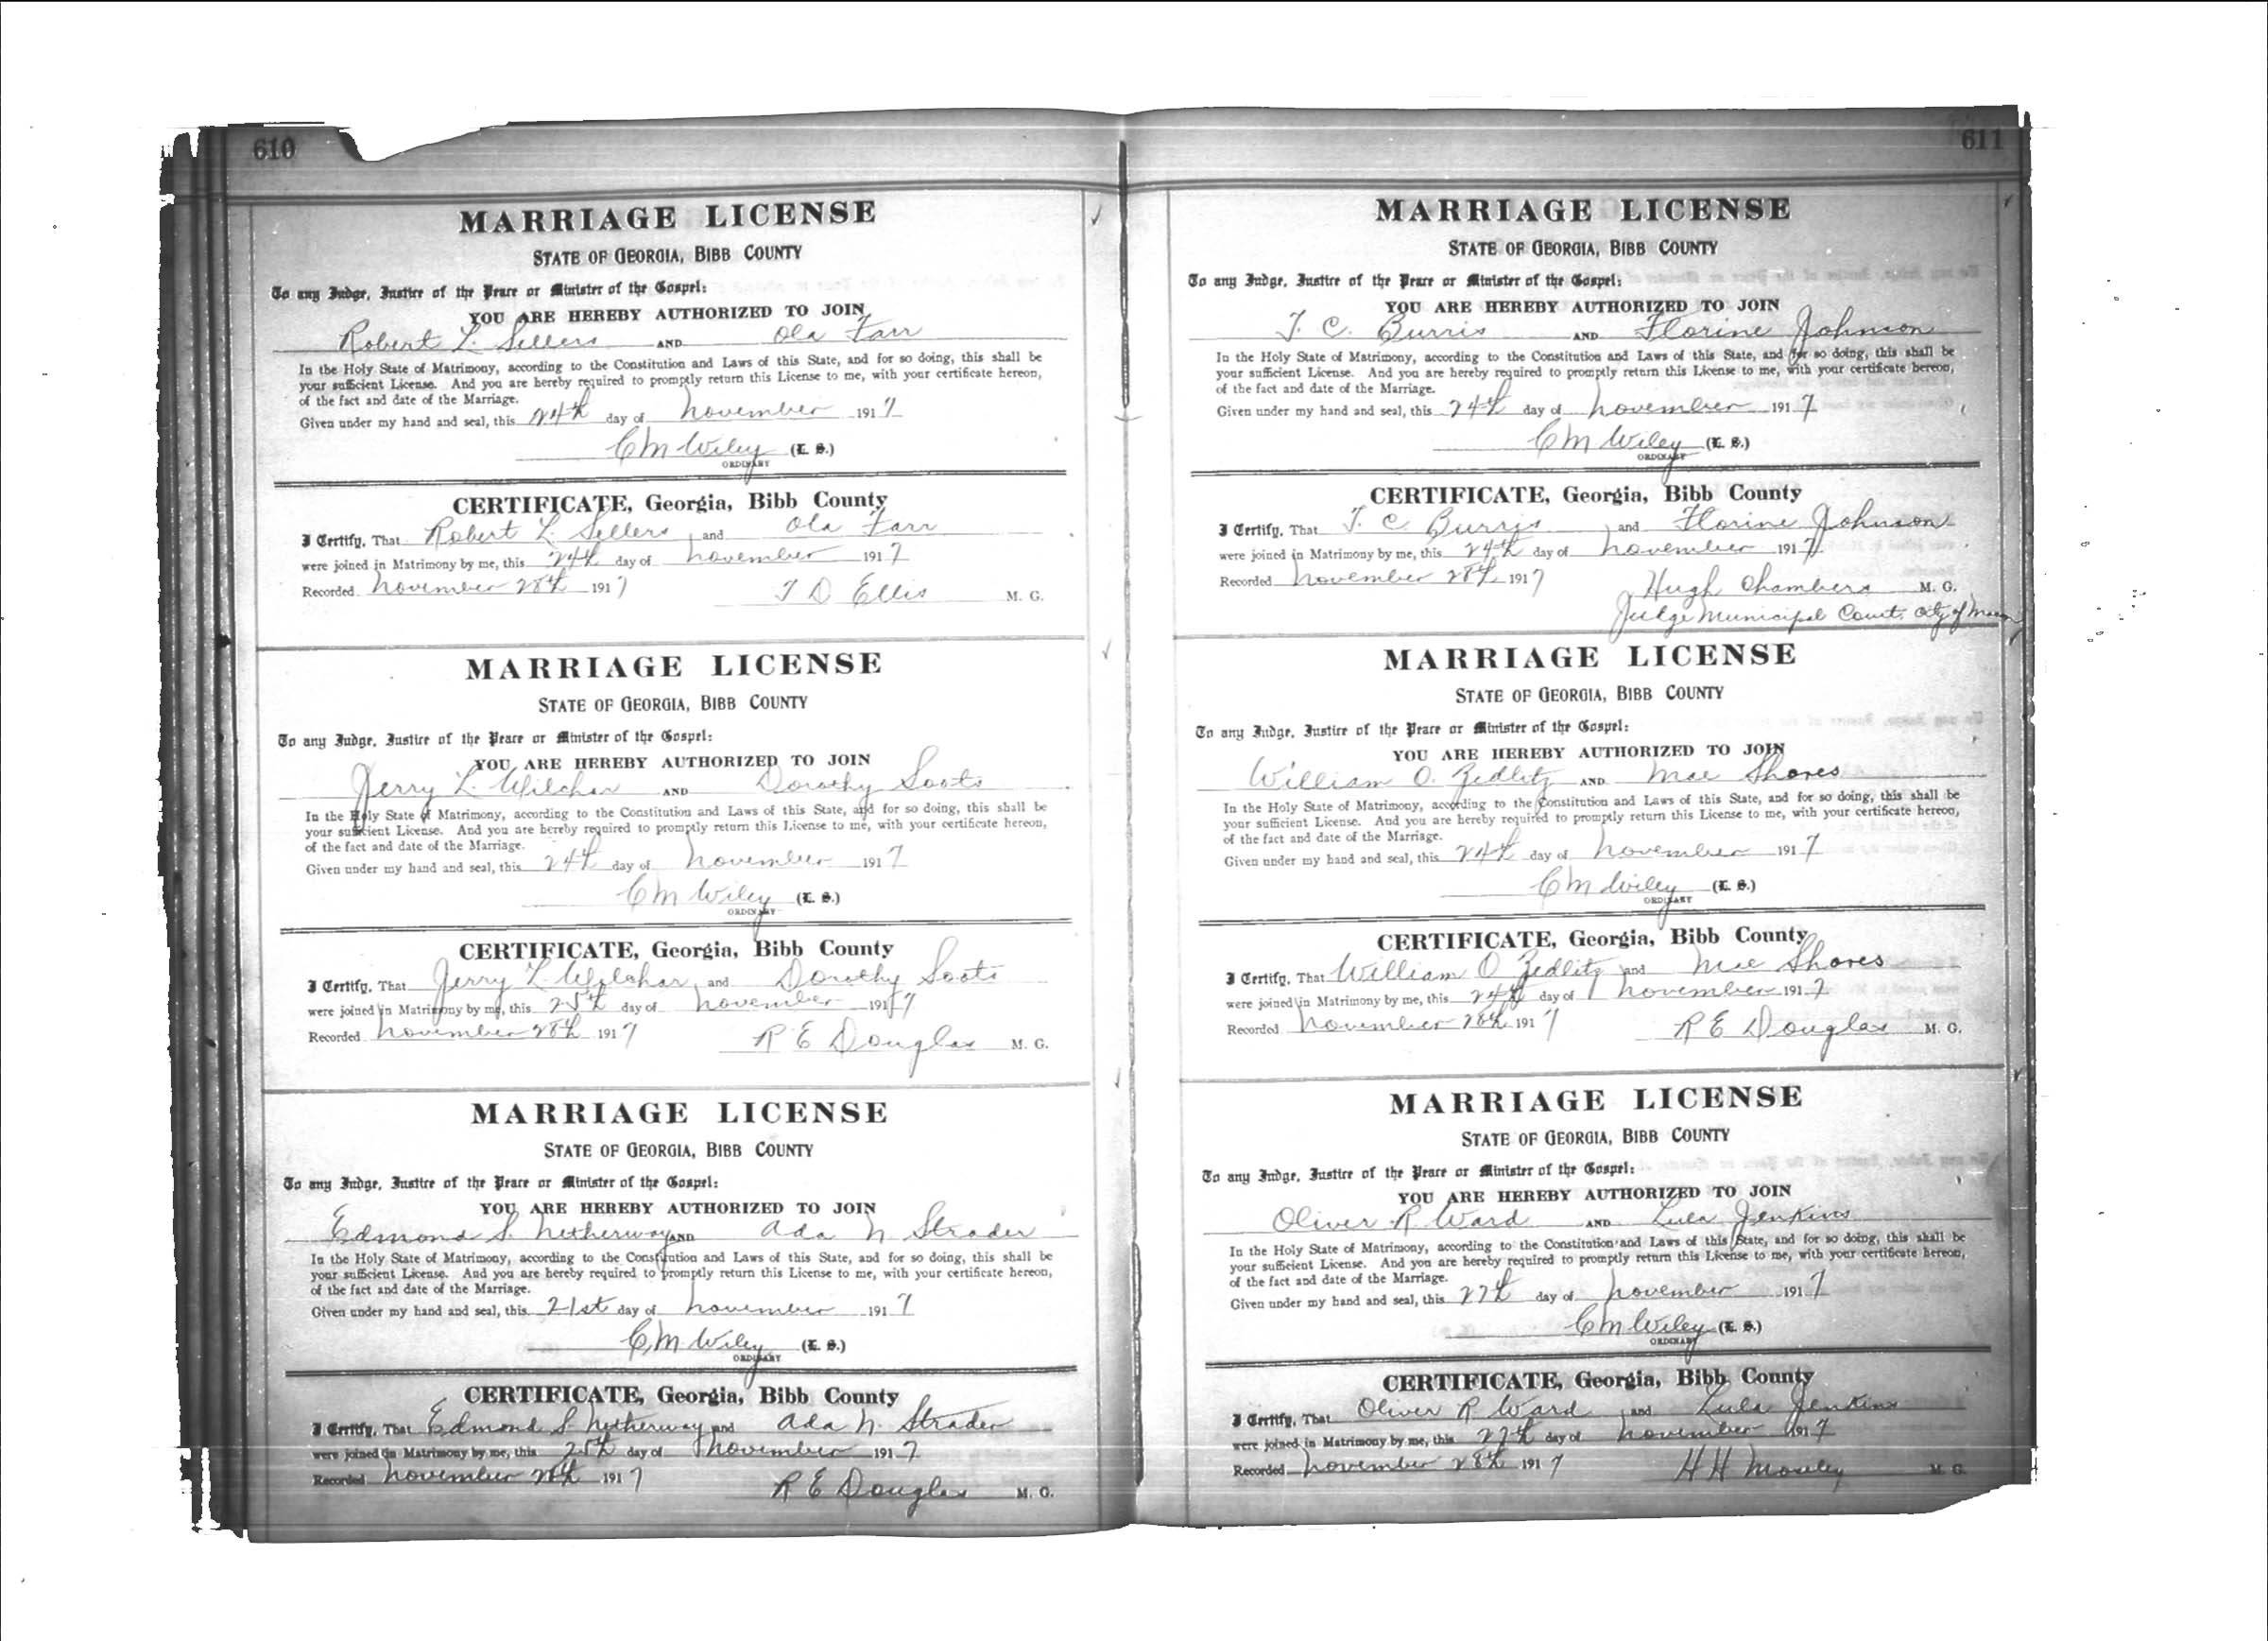 610
MARRIAGE LICENSE
STATE OF GEORGIA, BIBB COUNTY
To any Judge, Justice of the Peace or Minister of the Gospel:
YOU ARE HEREBY AUTHORIZED TO JOIN
Robert L. Sellers AND Ola Farr
In the Holy State of Matrimony, according to the Constitution and Laws of this State, and for so doing, this shall be
your sufficient License. And you are hereby required to promptly return this License to me, with your certificate hereon,
of the fact and date of the Marriage.
Given under my hand and seal, this 24th day of November 1917
C M Wiley (L. S.)
ORDINARY
CERTIFICATE, Georgia, Bibb County
I Certify, That Robert L. Sellers and Ola Farr
were joined in Matrimony by me, this 24th day of November 1917
Recorded November 28th 1917 T D Ellis M. G.
MARRIAGE LICENSE
STATE OF GEORGIA, BIBB COUNTY
To any Judge, Justice of the Peace or Minister of the Gospel:
YOU ARE HEREBY AUTHORIZED TO JOIN
Jerry L. AND Dorothy Soots
In the Holy State of Matrimony, according to the Constitution and Laws of this State, and for so doing, this shall be
your sufficient License. And you are hereby required to promptly return this License to me, with your certificate hereon,
of the fact and date of the Marriage.
Given under my hand and seal, this 24th day of November 1917
C M Wiley (L. S.)
ORDINARY
CERTIFICATE, Georgia, Bibb County
I Certify, That Jerry L. and Dorothy Soots
were joined in Matrimony by me, this 25th day of November 1917
Recorded November 28th 1917 R E Douglas M. G.
MARRIAGE LICENSE
STATE OF GEORGIA, BIBB COUNTY
To any Judge, Justice of the Peace or Minister of the Gospel:
YOU ARE HEREBY AUTHORIZED TO JOIN
Edmond S. Netherway AND Ada N Strader
In the Holy State of Matrimony, according to the Constitution and Laws of this State, and for so doing, this shall be
your sufficient License. And you are hereby required to promptly return this License to me, with your certificate hereon,
of the fact and date of the Marriage.
Given under my hand and seal, this 21st day of November 1917
C M Wiley (L. S.)
ORDINARY
CERTIFICATE, Georgia, Bibb County
I Certify, That Edmond S. Netherway and Ada N. Strader
were joined in Matrimony by me, this 25th day of November 1917
Recorded November 28th 1917 R E Douglas M. G.
611
MARRIAGE LICENSE
STATE OF GEORGIA, BIBB COUNTY
To any Judge, Justice of the Peace or Minister of the Gospel:
YOU ARE HEREBY AUTHORIZED TO JOIN
T. C. Burris AND Florine Johnson
In the Holy State of Matrimony, according to the Constitution and Laws of this State, and for so doing, this shall be
your sufficient License. And you are hereby required to promptly return this License to me, with your certificate hereon,
of the fact and date of the Marriage.
Given under my hand and seal, this 24th day of November 1917
C M Wiley (L. S.)
ORDINARY
CERTIFICATE, Georgia, Bibb County
I Certify, That T. C Burris and Florine Johnson
were joined in Matrimony by me, this 24th day of November 1917
Recorded November 28th 1917 Hugh Chambers M. G.
Judge Municipal Court, City of Macon
MARRIAGE LICENSE
STATE OF GEORGIA, BIBB COUNTY
To any Judge, Justice of the Peace or Minister of the Gospel:
YOU ARE HEREBY AUTHORIZED TO JOIN
William O. Zedlitz AND Mae Shores
In the Holy State of Matrimony, according to the Constitution and Laws of this State, and for so doing, this shall be
your sufficient License. And you are hereby required to promptly return this License to me, with your certificate hereon,
of the fact and date of the Marriage.
Given under my hand and seal, this 24th day of November 1917
C M Wiley (L. S.)
ORDINARY
CERTIFICATE, Georgia, Bibb County
I Certify, That William O Zedlitz and Mae Shores
were joined in Matrimony by me, this 24th day of November 1917
Recorded November 28th 1917 R E Douglas M. G.
MARRIAGE LICENSE
STATE OF GEORGIA, BIBB COUNTY
To any Judge, Justice of the Peace or Minister of the Gospel:
YOU ARE HEREBY AUTHORIZED TO JOIN
Oliver R Ward AND Lula Jenkins
In the Holy State of Matrimony, according to the Constitution and Laws of this State, and for so doing, this shall be
your sufficient License. And you are hereby required to promptly return this License to me, with your certificate hereon,
of the fact and date of the Marriage.
Given under my hand and seal, this 27th day of November 1917
C M Wiley (L. S.)
ORDINARY
CERTIFICATE, Georgia, Bibb County
I Certify, That Oliver R Ward and Lula Jenkins
were joined in Matrimony by me, this 27th day of November 1917
Recorded November 28th 1917 H H M. G.